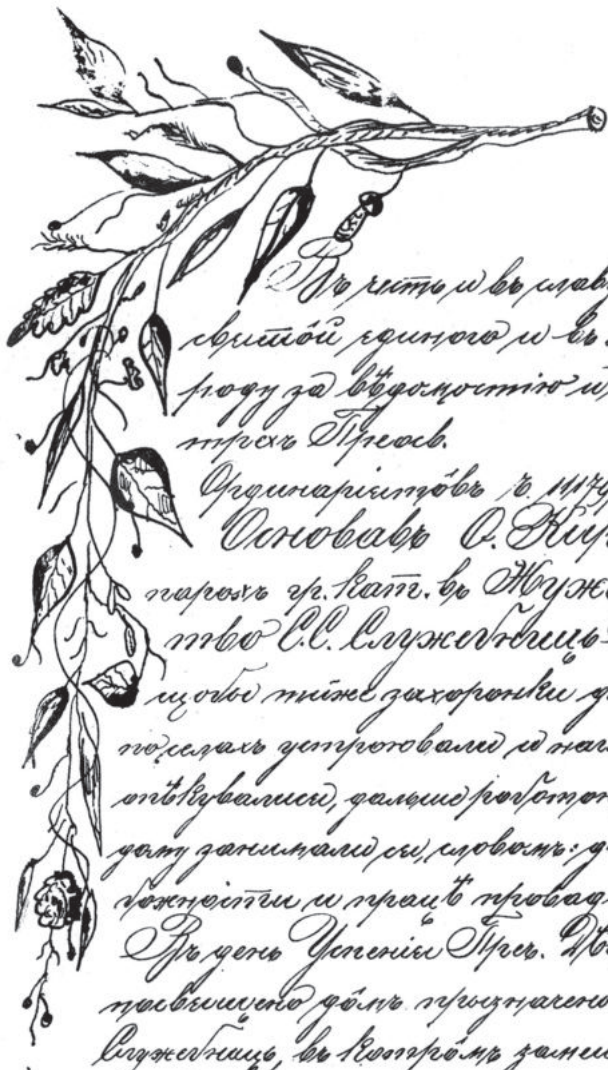 Въ честь и въ слав
святой единого и въ
роду за вѣдомостію и
трехъ Преосв.
Ординаріятôвъ р.
Основавъ О. Кир
парохъ гр. кат. въ Жуже
тво С.С. Служебниць
щобы тыже захоронки д
по селахъ устроювали и над
опѣкувалися, дальше роботою
дому занимали ся, словомъ: д
божности и працѣ провад
Въ день Успенія Прес. Дѣ
посвящено дôмъ призначено
Служебниць, въ котрôмъ заме